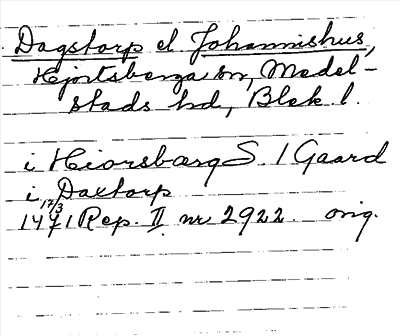 Dagstorp el Johannishus,
Hjortsberga sn, Medel-
stads hd, Blek. l.
i Hiorsbærg S. 1 Gaard
i Daxtorp
17/3
1471 Rep. II nr 2922 orig.